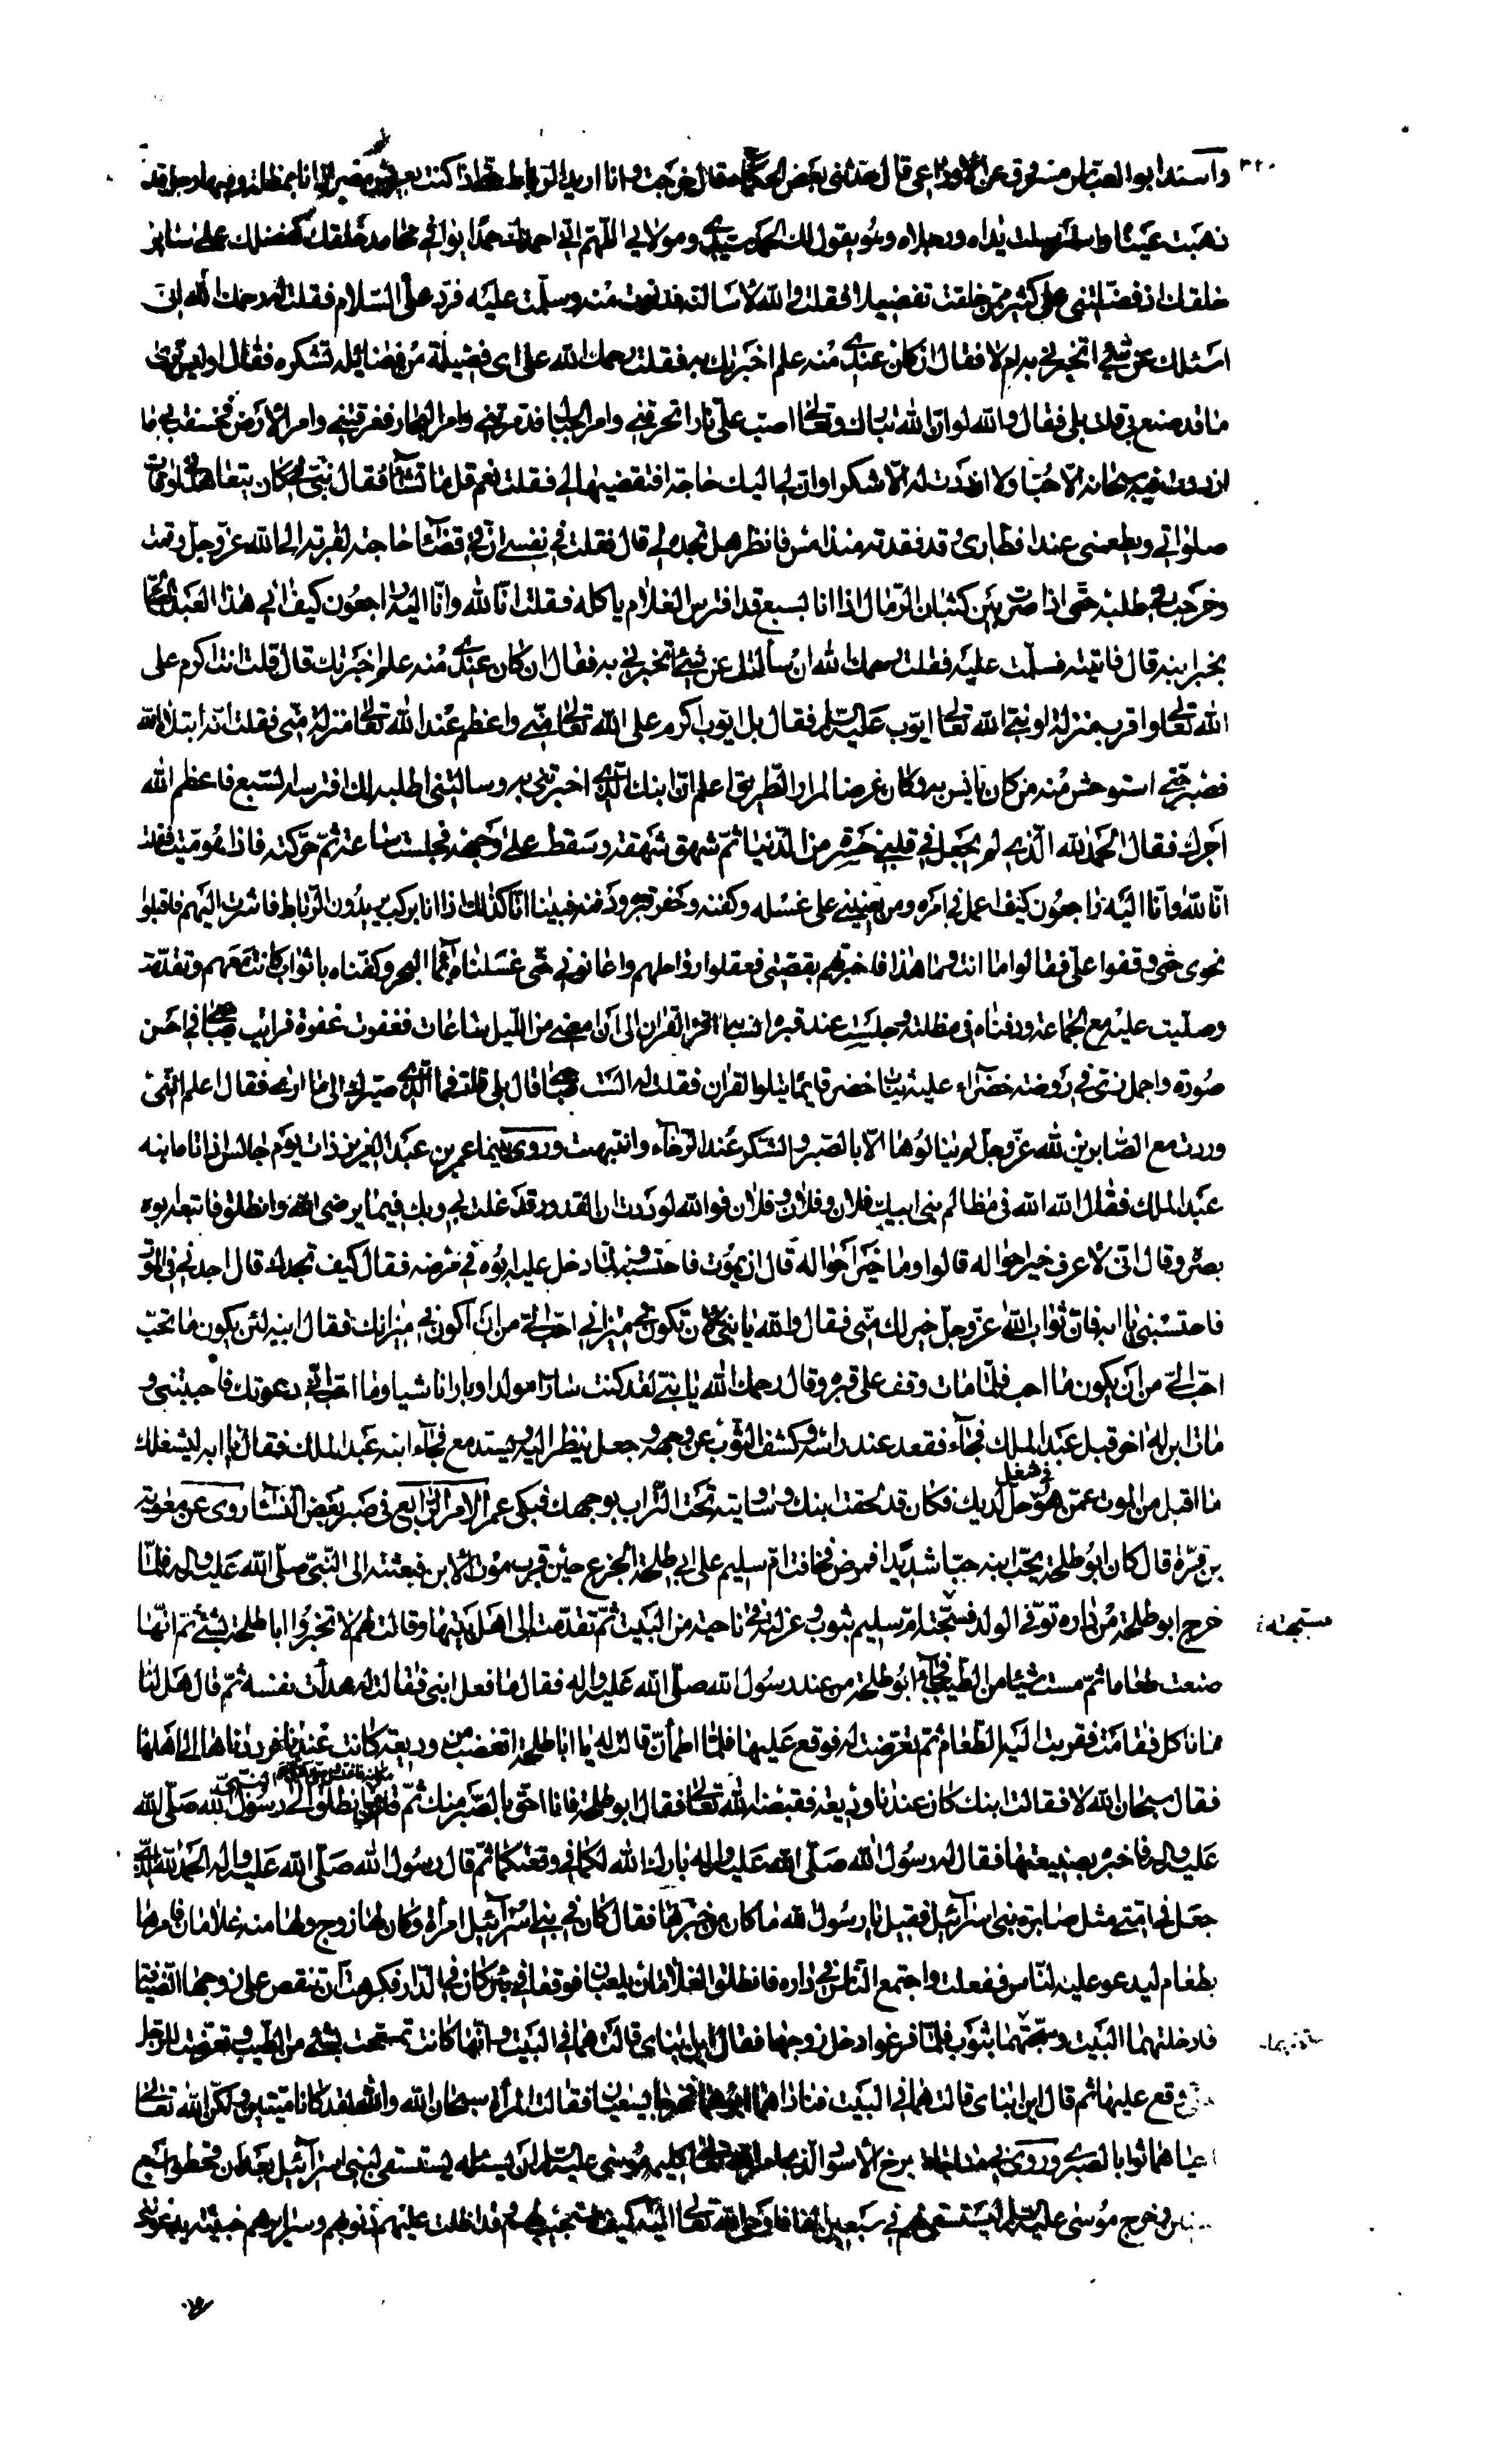 واسند ابو العباس بن مسروق عن الاوزاعي قال حدثني بعض الحكماء قال خرجت وانا اريد الرباط حتى اذا كنت بعريش مصر اذا انا بمظلة وفيها رجل قد
ذهبت عيناه واسترسلت يداه ورجلاه وهو يقول لك الحمد سيدي ومولاي اللهم اني احمدك حمدا يوافي محامد خلقك كفضلك على سائر
خلقك اذ فضلتني على كثير ممن خلقت تفضيلا فقلت والله لاسالنه فدنوت منه وسلمت عليه فرد علي السلام فقلت له رحمك الله اني
اسئلك عن شيء اتخبرني به ام لا فقال ان كان عندي منه علم اخبرتك به فقلت رحمك الله على اى فضيلة من فضائله تشكره فقال اوليس ترى
ما قد صنع بي قلت بلى فقال والله لو ان الله تبارك وتعالى صب علي نارا تحرقني وامر الجبال فدمرتني وامر البحار فغرقتني وامر الارض فخسفت بي ما
ازددت فيه سبحانه الا حبا ولا ازددت له الا شكرا وان لي اليك حاجة افتقضيها لي فقلت نعم قل ما تشاء فقال بني لي كان يتعاهدني اوقات
صلواتي ويطعمني عند افطاري وقد فقدته منذ امس فانظر هل تجده لي قال فقلت في نفسي ان في قضاء حاجته لقربة الى الله عز وجل وقمت
وخرجت في طلبه حتى اذا صرت بين كثبان الرمال اذا انا بسبع قد افترس الغلام ياكله فقلت انا لله وانا اليه راجعون كيف اتي هذا العبد الصالح
بخبر ابنه قال فاتيته فسلمت عليه فقلت رحمك الله ان سالتك عن شيء تخبرني به فقال ان كان عندي منه علم اخبرتك قال قلت انت اكرم على
الله تعالى واقرب منزلة او نبي الله تعالى ايوب عليه السلام فقال بل ايوب اكرم على الله تعالى مني واعظم عند الله تعالى منزلة مني فقلت انه ابتلاه الله
فصبر حتى استوحش منه من كان يانس به وكان غرضا لمرار الطريق اعلم ان ابنك الذي اخبرتني به وسالتني اطلبه لك افترسه السبع فاعظم الله
اجرك فقال الحمد لله الذي لم يجعل في قلبي حسرة من الدنيا ثم شهق شهقة وسقط على وجهه فجلست ساعة ثم حركته فاذا هو ميت فقلت
انا لله وانا اليه راجعون كيف اعمل في امره ومن يعينني على غسله وكفنه وحفر قبره ودفنه فبينا انا كذلك اذا انا بركب يريدون الرباط فاشرت اليهم فاقبلوا
نحوى حتى وقفوا علي فقالوا ما انت وما هذا فاخبرتهم بقصتي فعقلوا رواحلهم واعانوني حتى غسلناه بماء البحر وكفناه باثواب كانت معهم وتقدمت
وصليت عليه مع الجماعة ودفناه في مظلته وجلست عند قبره انسا به اقرء القران الى ان مضى من الليل ساعات فغفوت غفوة فرايت صاحبي في احسن
صورة واجمل زي في روضة خضراء عليه ثياب خضر قايما يتلو القران فقلت له الست صاحبي قال بلى قلت فما الذي صيرك الى ما ارى فقال اعلم انني
وردت مع الصابرين لله عز وجل لم ينالوها الا بالصبر والشكر عند الرخاء وانتبهت وروى بينما عمر بن عبد العزيز ذات يوم جالس اذ اتاه ابنه
عبد الملك فقال الله الله في مظالم بني ابيك فلان وفلان وفلان فوالله لوددت ان القدور قد غلت بي وبك فيما يرضي الله وانطلق فاتبعه ابوه
بصره وقال اني لاعرف خير احواله قالوا وما خير احواله قال ان يموت فاحتسبه ولما دخل عليه ابوه في مرضه فقال كيف تجدك قال اجدني في الموت
فاحتسبني يا ابه فان ثواب الله عز وجل خير لك مني فقال والله يا بني لان تكون في ميزاني احب الي من ان اكون في ميزانك فقال ابنه لئن يكون ما تحب
احب الي من ان يكون ما احب فلما مات وقف على قبره وقال رحمك الله يا بني لقد كنت سارا مولدا وبارا ناشيا وما احب اني دعوتك فاجبتني و
مات ابن له اخر قبل عبد الملك فجاء فقعد عند راسه وكشف الثوب عن وجهه وجعل ينظر اليه ويستدمع فجاء ابنه عبد الملك فقال يا ابه ليشغلك
ما اقبل من الموت عمن هو في شغل حل لديك فكان قد لحقت ابنك وساويته تحت التراب بوجهك فبكى عمر الامر الرابع في صبر بعض النساء روى عن معوية
بن قرة قال كان ابو طلحة يحب ابنه حبا شديدا فمرض فخافت ام سليم على ابي طلحة الجزع حين قرب موت الابن فبعثته الى النبي صلى الله عليه واله فلما
خرج ابو طلحة من داره توفي الولد فسجته ام سليم بثوب وعزلته في ناحية من البيت ثم تقدمت الى اهل بيتها وقالت لهم لا تخبروا ابا طلحة بشيء ثم انها
صنعت طعاما ثم مست شيئا من الطيب فجاء ابو طلحة من عند رسول الله صلى الله عليه واله فقال ما فعل ابني فقالت له هدأت نفسه ثم قال هل لنا
ما ناكل فقامت فقربت اليه الطعام ثم تعرضت له فوقع عليها فلما اطمأن قالت له يا ابا طلحة اتغضب من وديعة كانت عندنا فرددناها الى اهلها
فقال سبحان الله لا فقالت ابنك كان عندنا وديعة فقبضه الله تعالى فقال ابو طلحة فانا احق بالصبر منك ثم قام وانطلق الى رسول الله صلى الله
عليه واله فاخبره بصنيعتها فقال له رسول الله صلى الله عليه واله بارك الله لكما في وقعتكما ثم قال رسول الله صلى الله عليه واله الحمد لله الذي
جعل في امتي مثل صابرة بني اسرآئيل فقيل يا رسول الله ما كان من خبرها فقال كان في بني اسرآئيل امرأة وكان لها زوج ولها منه غلامان فامرها
بطعام ليدعو عليه الناس ففعلت واجتمع الناس في داره فانطلق الغلامان يلعبان فوقعا في بئر كان في الدار فكرهت ان تنقص على زوجها الضيافة
فادخلتهما البيت وسجتهما بثوب فلما فرغوا دخل زوجها فقال اين ابناى قالت هما في البيت وانها كانت تمسحت بشيء من الطيب وتعرضت للرجل
وقع عليها ثم قال اين ابناى قالت هما في البيت فناداهما ابوهما فخرجا يسعيان فقالت المرأة سبحان الله والله لقد كانا ميتين ولكن الله تعالى
احياهما ثوابا لصبري وروى برخ الاسود الذي امر الله تعالى كليمه موسى عليه السلام ان يسئله يستسقي لبني اسرآئيل بعد ان قحطوا سبع
سنين وخرج موسى عليه السلام ليستسقي لهم في سبعين الفا فاوحى الله تعالى اليه كيف استجيب لهم وقد اظلت عليهم ذنوبهم وسرايرهم خبيثة يدعونني